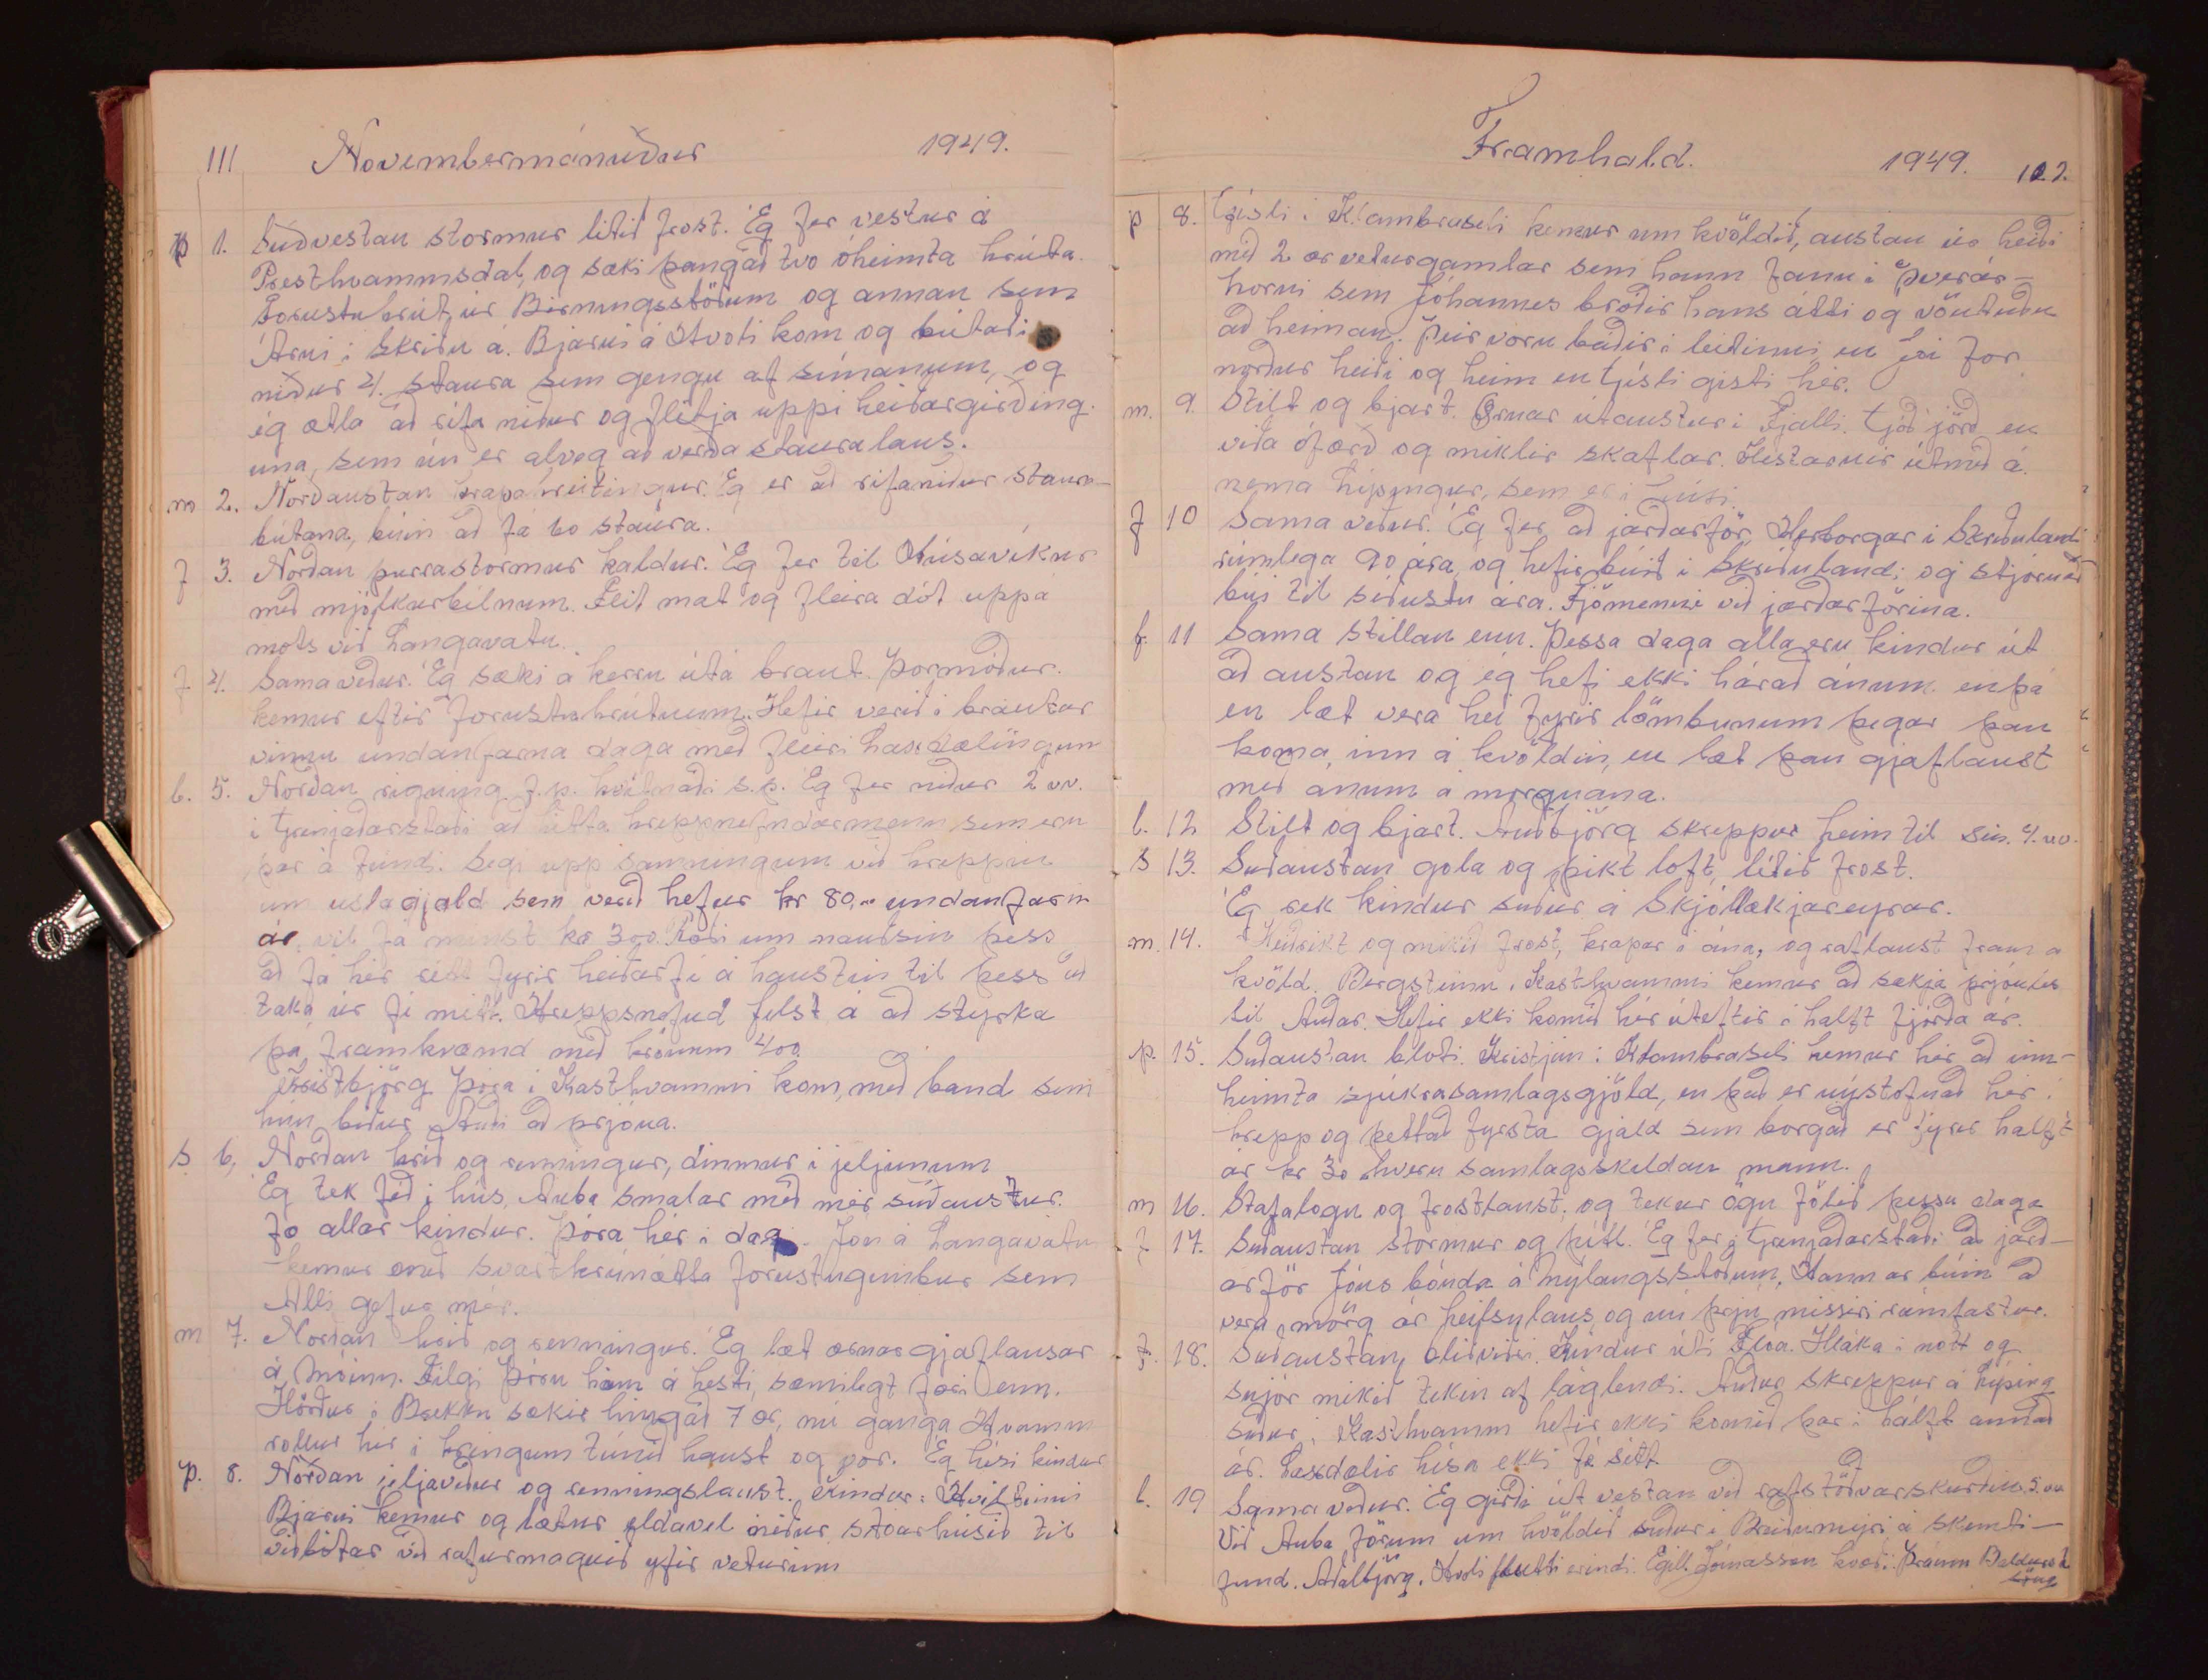 111 Novembermánuður 1949.
þ 1. Suðvestan stormur litið frost. Ég fer vestur á
Presthvammsdal, og sæki þangað tvo óheimta hrúta.
Forustuhrút úr Birningsstöðum og annan sem
Árni í Skriðu á. Bjarni á Hvoli kom og bútaði
niður 4 staura sem gengu af símanum, og
ég ætla að rífa niður og flitja uppi heiðargirðing-
una, sem nú er alveg að verða stauralaus.
m 2. Norðaustan krapahreitingur. Ég er að rifa niður staura-
bútana, búin að fá 60 staura.
f 3. Norðan þurrastormur kaldur. Ég fer til Húsavíkur
með mjólkurbílnum. Fleit mat og fleira dót uppá
mots við Langavatn.
f 4. Sama veður. Ég sæki á kerru útá braut. Þormóður
kemur eftir forustuhrútnum. Hefir verið í brautar
vinnu undanfarna daga með fleiri Laxdælingum
l. 5. Norðan rigning f.p. s.p. Ég fer niður 2 vv.
í Grenjaðarstað að hitta hreppsnefndarmenn sem eru
þar á fundi. Segi upp samningum við hreppin
um uslagjald sem verið hefur kr 80,00 undanfarin
ár, vil fá minst kr 300. Ræði um nauðsin þess
að fá hér rétt fyrir heiðarfé á haustin til þess að
taka úr fé mitt. Hreppsnefnd felst á að styrkja
þá framkvæmd með krónum 400
Kristbjörg Þóra í Kasthvammi kom, með band sem
hún biður Auði að prjóna.
s 6, Norðan hríð og renningur, dimmur í jeljunum
Ég tek féð í hús, Auba smalar með mér suðaustur.
Fæ allar kindur. Þóra hér í dag. Jón á Langavatni
kemur með svartkrúnótta forustugimbur sem
Alli gefur mér.
m 7. Norðan hríð og renningur. Ég læt ærnar gjaflausar
á móinn. Filgi Þóru heim á hesti, sæmilegt færi enn.
Hörður í Brekku sækir hingað 7 ær, nú ganga Hvamm
rollur hér í kringum túnið haust og vor. Ég hísi kindur
þ. 8. Norðan jeljaveður og renningslaust. Kindur í Hvíltinni
Bjarni kemur og lætur eldavél niður stóarhúsið til
viðbótar við rafurmagnið yfir veturinn
Framhald. 1949. 112.
þ 8. Gísli í Klambruseli kemur um kvöldið, austan úr heiði
með 2 ær veturgamlar sem hann fann í Þverár-
horni sem Jóhannes bróðir hans átti og vöntuðu
að heiman. Þeir voru báðir í leitinni en Jói for
norður heiði og heim en Gísli gisti hér.
m. 9. Stilt og bjart. Ærnar útaustur í Fjalli. Góð jörð en
viða ófærð og miklir skaflar. Hestarnir útmeð á
nema Lipingur, sem er í húsi.
f 10 Sama veður. Ég fer að jarðarför Herborgar í Skriðulandi
rúmlega 90 ára, og hefir búið í Skriðulandi og stjórnað
búi til siðustu ára. Fjölmenni við jarðarförina.
f. 11 Sama stillan enn. Þessa daga alla eru kindur út
að austan og ég hefi ekki hárað ánum enþá
en læt vera hei fyrir lömbunum þegar þau
koma inn á kvöldin, en læt þau gjaflaust
með ánum á morgnana.
l. 12 Stilt og bjart. Auðbjörg skreppur heim til sín. 4. vv.
S 13. Suðaustan gola og þikt loft, lítið frost.
Ég rek kindur suður á Skjóllækjareyrar.
m. 14. Heiðrikt og mikið frost, krapar í ána, og raflaust fram á
kvöld. Bergsteinn í Kasthvammi kemur að sækja prjónles
til Auðar. Hefir ekki komið hér úteftir í hálft fjórða ár.
þ. 15. Suðaustan bloti. Kristján í Klambraseli kemur hér að inn-
heimta sjúkrasamlagsgjöld, en það er nýstofnað hér í
hrepp og þettað fyrsta gjald sem borgað er fyrir hálft
ár kr 30 hvern samlagsskildan mann.
m 16. Stafalogn og frostlaust, og tekur ögn fölið þessa daga
f 17. Suðaustan stormur og hitl. Ég fer í Grenjaðarstað að jarð-
arför Jóns bónda á Mýlaugsstöðum. Hann ar búin að
vera mörg ár heilsulaus, og nú þrjú missiri rúmfastur.
f. 18. Suðaustan, bliðviðri. Kindur úti Flóa. Hláka í nótt og
snjór mikið tekin af láglendi. Auður skreppur á Liping
suður í Kasthvamm hefir ekki komið þar í hálft annað
ár. Laxdælir hísa ekki fé sitt
l. 19 Sama veður. Ég girði út vestan við rafstöðvarskurðin. 5. vv
Við Auba förum um kvöldið suður í Breiðumýri á skemti-
fund. Aðalbjörg. Hvoli flutti erindi. Egill Jónasson kvað. Þráinn Baldurs h
söng